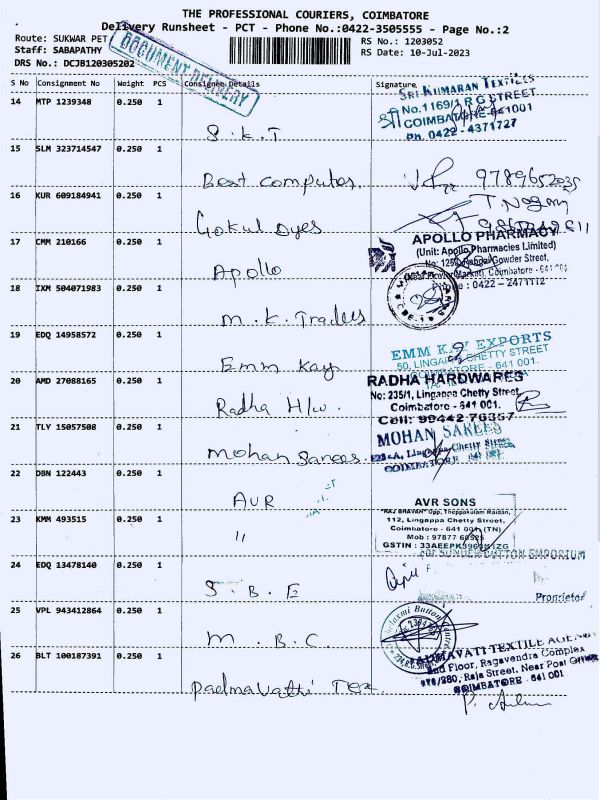 THE PROFESSIONAL COURIERS, COIMBATORE
Delivery Runsheet - PCT - Phone No.:0422-3505555 - Page No.:2
Route: SUKWAR PET
RS No.: 1203052
Staff: SABAPATHY
RS Date: 10-Jul-2023
DRS No.: DCJB120305202
DOCUMENT DELIVERY
S No Consignment No Weight PCS Consignee Details Signature
14 MTP 1239348 0.250 1
S.K.T
SRI KUMARAN TEXTILES
No.1169/1 R G STREET
COIMBATORE-641001
Ph. 0422-4371727
15 SLM 323714547 0.250 1
Best computer.
9789652035
16 KUR 609184941 0.250 1
Gokul Dyes
17 CMM 210166 0.250 1
Apollo
APOLLO PHARMACY
(Unit: Apollo Pharmacies Limited)
Gowder Street,
Coimbatore - 641
Phone : 0422 - 2471112
18 IXM 504071983 0.250 1
M.K. Traders
19 EDQ 14958572 0.250 1
Emm Kay
EMM K EXPORTS
50, LINGAPPA CHETTY STREET
COIMBATORE - 641 001.
20 AMD 27088165 0.250 1
Radha H/w.
RADHA HARDWARES
No: 235/1, Lingappa Chetty Street,
Coimbatore - 641 001.
Cell: 99442 76357
21 TLY 15057508 0.250 1
Mohan Sarees.
MOHAN SAREES
Lingappa Chetty Street
COIMBATORE
22 DBN 122443 0.250 1
AVR
AVR SONS
"RAJ BHAVAN" Opp, Theppakulam Maidan,
112, Lingappa Chetty Street,
Coimbatore - 641 001 (TN)
Mob : 97877 66525
23 KMM 493515 0.250 1
"
24 EDQ 13478140 0.250 1
S.B.E
BUTTON EMPORIUM
Proprietor
25 VPL 943412864 0.250 1
M.B.C.
26 BLT 100187391 0.250 1
Padmavathi Tex
PADMAVATI TEXTILE AGENCY
2nd Floor, Ragavendra Complex
Raja Street, Near Post Office
COIMBATORE - 641 001